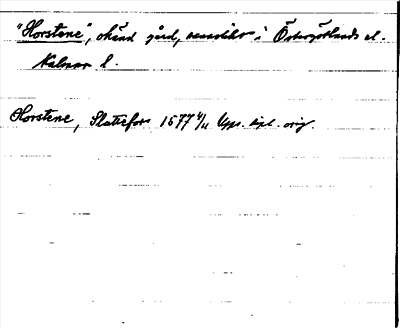 "Horstene", okänd gård, sannolikt i Östergötlands el.
Kalmar l.
Horstene, Slattefors 1577 4/11 Upps. dipl. orig.